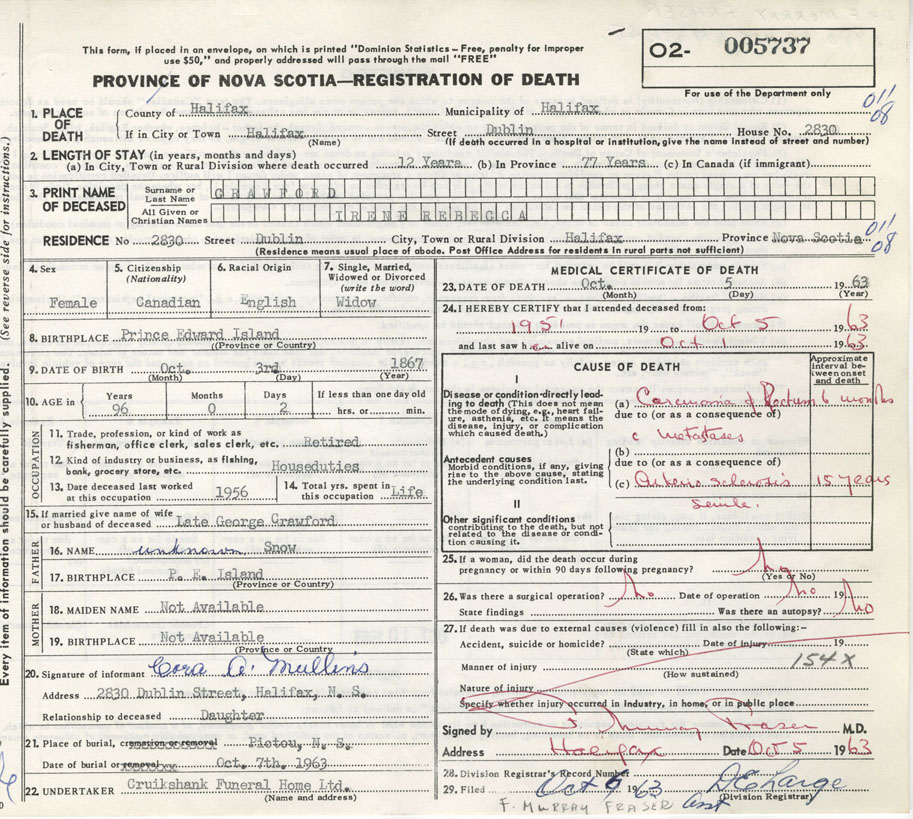 This form, if placed in an envelope, on which is printed "Dominion Statistics – Free, penalty for improper
use $50," and properly addressed will pass through the mail "FREE"
O2- 005737
PROVINCE OF NOVA SCOTIA—REGISTRATION OF DEATH
For use of the Department only
011
08
1. PLACE OF DEATH
County of Halifax Municipality of Halifax
If in City or Town Halifax Street Dublin House No. 2830
(Name) (If death occurred in a hospital or institution, give the name instead of street and number)
2. LENGTH OF STAY (in years, months and days)
(a) In City, Town or Rural Division where death occurred 12 Years (b) In Province 77 Years (c) In Canada (if immigrant)
3. PRINT NAME OF DECEASED
Surname or Last Name CRAWFORD
All Given or Christian Names IRENE REBECCA
011
08
RESIDENCE No 2830 Street Dublin City, Town or Rural Division Halifax Province Nova Scotia
(Residence means usual place of abode. Post Office Address for residents in rural parts not sufficient)
4. Sex Female
5. Citizenship (Nationality) Canadian
6. Racial Origin English
7. Single, Married, Widowed or Divorced (write the word) Widow
8. BIRTHPLACE Prince Edward Island
(Province or Country)
9. DATE OF BIRTH Oct. 3rd 1867
(Month) (Day) (Year)
10. AGE in Years 96 Months 0 Days 2 If less than one day old hrs. or min.
OCCUPATION
11. Trade, profession, or kind of work as
fisherman, office clerk, sales clerk, etc. Retired
12. Kind of industry or business, as fishing,
bank, grocery store, etc. Houseduties
13. Date deceased last worked
at this occupation 1956
14. Total yrs. spent in
this occupation Life
15. If married give name of wife
or husband of deceased Late George Crawford
FATHER
16. NAME unknown Snow
17. BIRTHPLACE P. E. Island
(Province or Country)
MOTHER
18. MAIDEN NAME Not Available
19. BIRTHPLACE Not Available
(Province or Country
20. Signature of informant Cora A. Mullins
Address 2830 Dublin Street, Halifax, N. S.
Relationship to deceased Daughter
21. Place of burial, cremation or removal Pictou, N. S.
Date of burial or removal Oct. 7th. 1963
22. UNDERTAKER Cruikshank Funeral Home Ltd.
(Name and address)
Every item of information should be carefully supplied. (See reverse side for instructions.)
MEDICAL CERTIFICATE OF DEATH
23. DATE OF DEATH Oct. 5 1963
(Month) (Day) (Year)
24. I HEREBY CERTIFY that I attended deceased from:
1951 19 to Oct 5 1963
and last saw her alive on Oct 1 1963
CAUSE OF DEATH
Approximate interval between onset and death
I
Disease or condition directly leading to death (This does not mean the mode of dying, e.g., heart failure, asthenia, etc. It means the disease, injury, or complication which caused death.)
(a) Carcinoma of Rectum 6 months
due to (or as a consequence of)
c metastases
Antecedent causes
Morbid conditions, if any, giving rise to the above cause, stating the underlying condition last.
(b)
due to (or as a consequence of)
(c) Arterio sclerosis 15 years
senile.
II
Other significant conditions
contributing to the death, but not related to the disease or condition causing it.
25. If a woman, did the death occur during
pregnancy or within 90 days following pregnancy? no
(Yes or No)
26. Was there a surgical operation? no Date of operation no 19
State findings Was there an autopsy? no
27. If death was due to external causes (violence) fill in also the following:-
Accident, suicide or homicide? Date of injury 19
(State which)
154X
Manner of injury
(How sustained)
Nature of injury
Specify whether injury occurred in industry, in home, or in public place
Signed by F Murray Fraser M.D.
Address Halifax Date Oct 5 1963
28. Division Registrar's Record Number
29. Filed Oct 1963
(Division Registrar)
F. MURRAY FRASER Asst